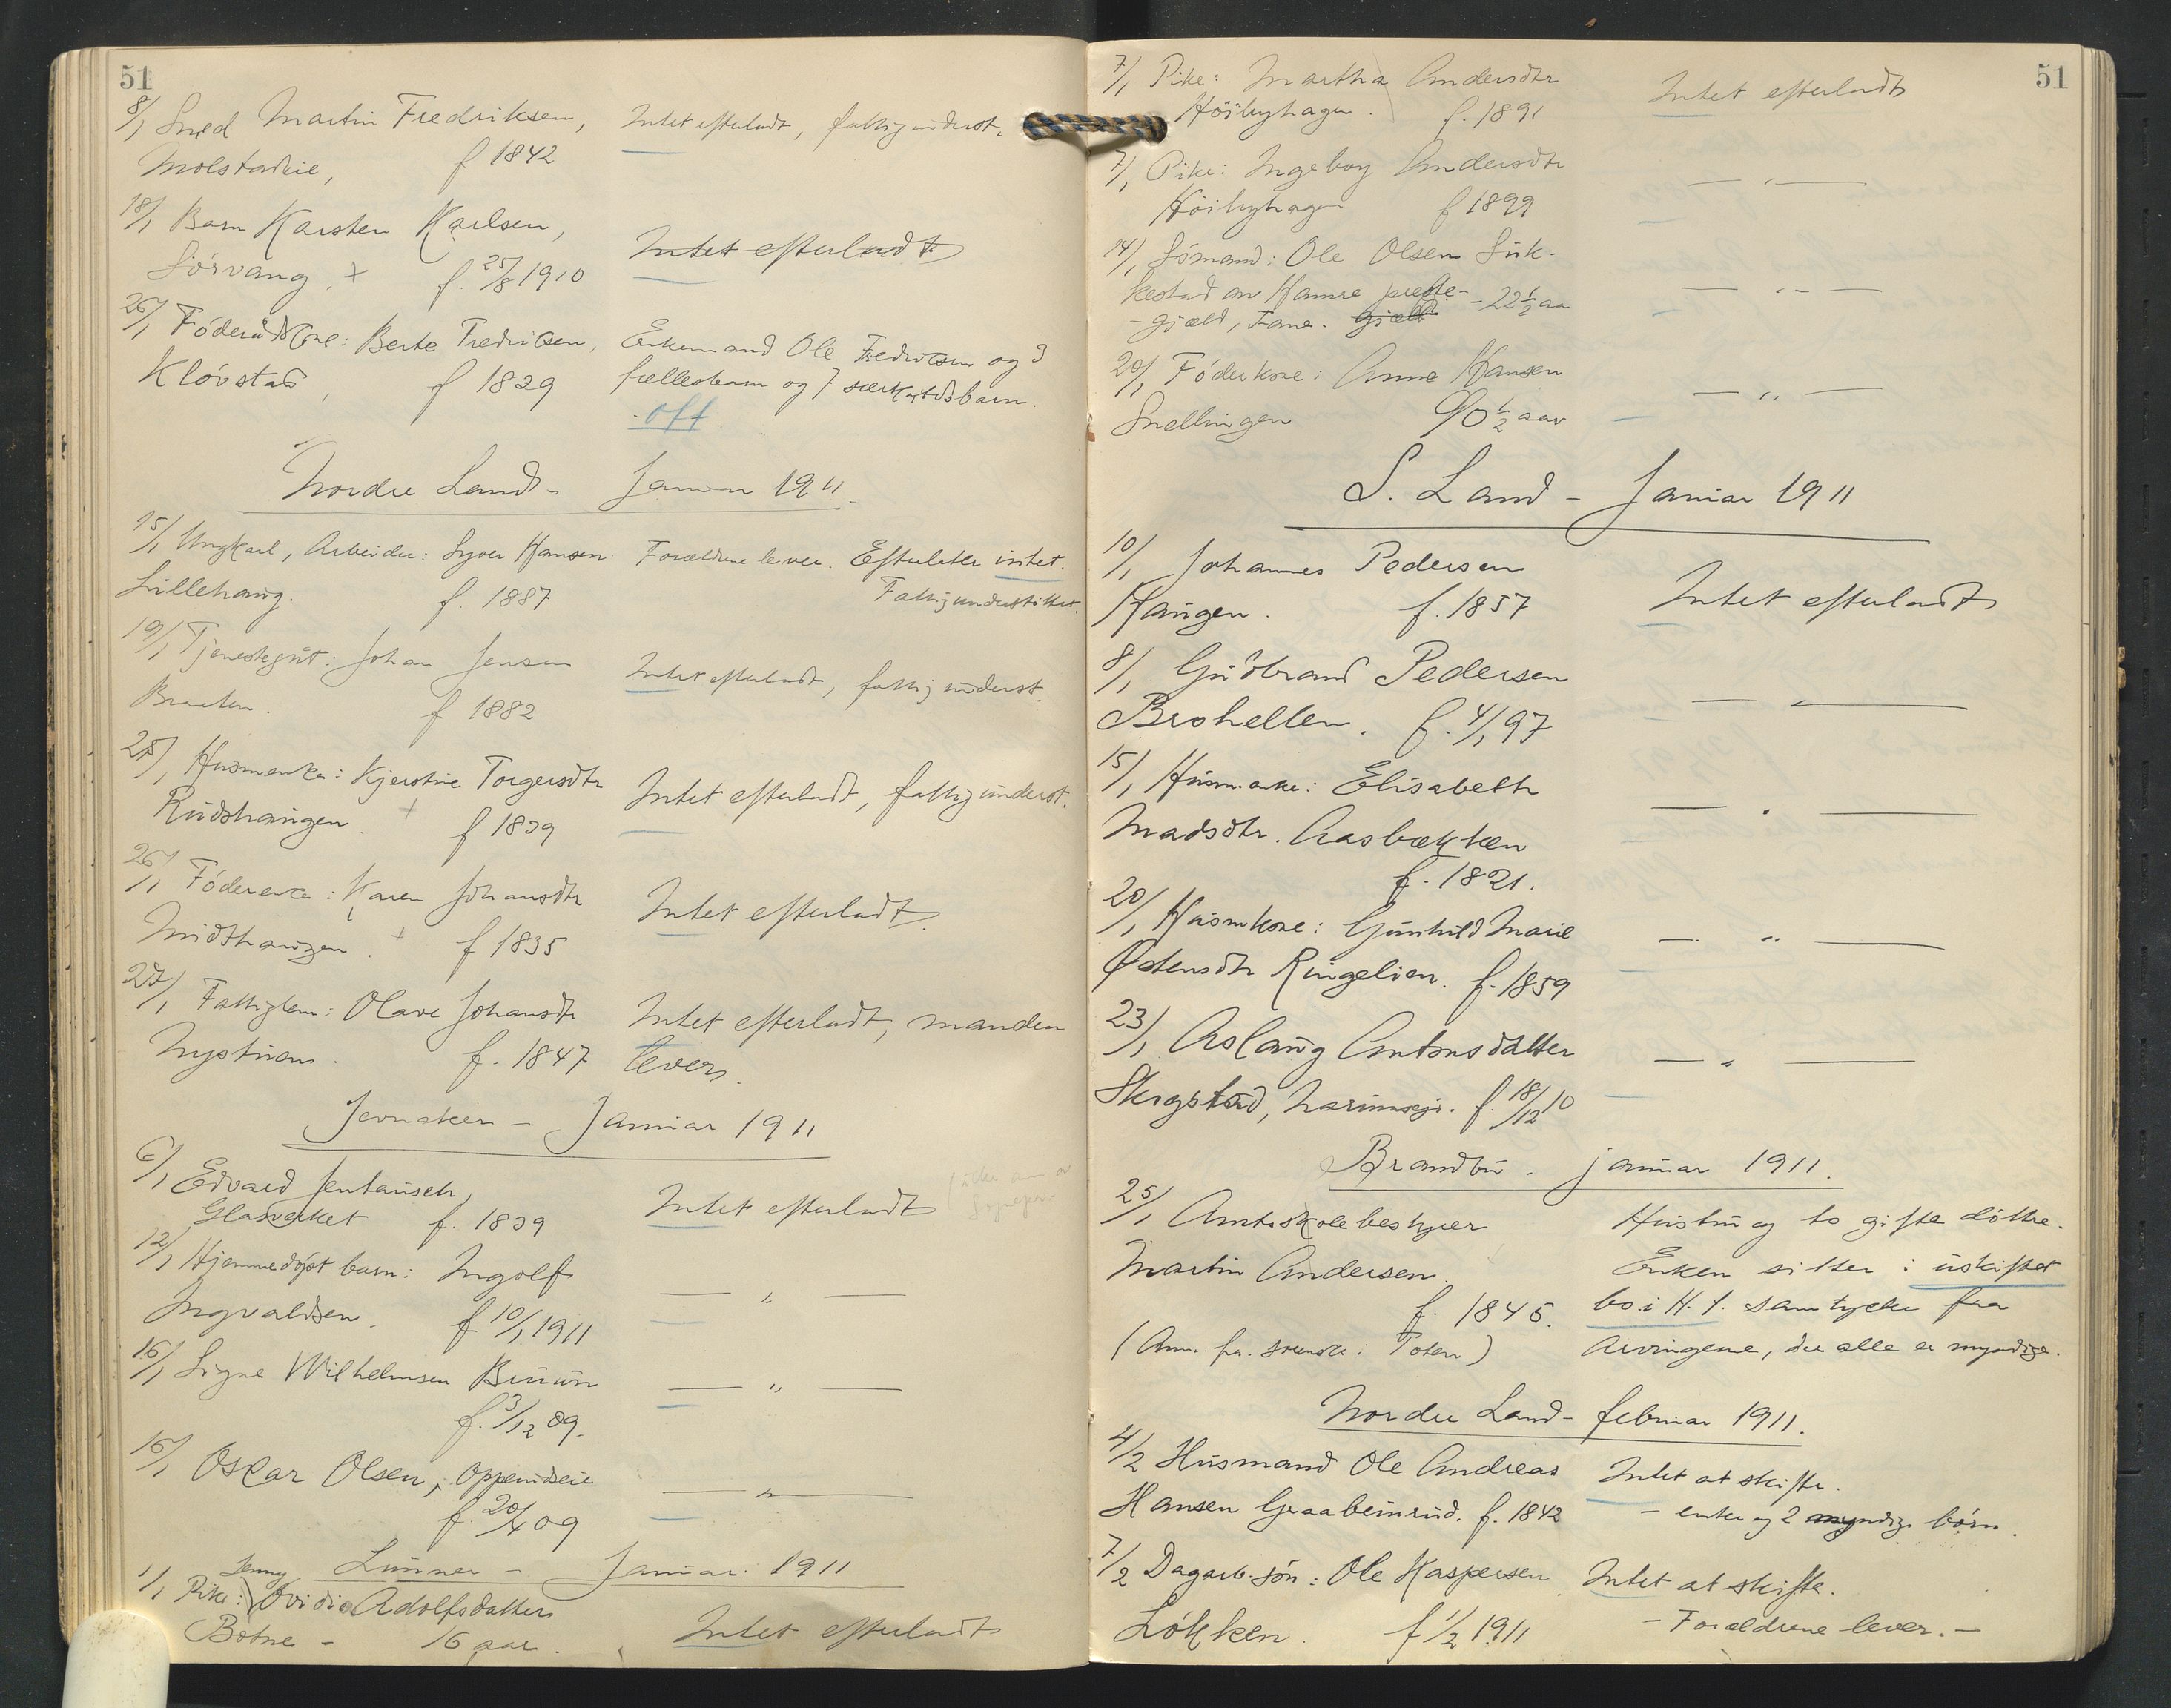 51
8/1 Smed Martin Fredriksen, Intet efterladt, fattigunderst.
Molstadeie, f 1842
18/1 Barn Karsten Karlsen, Intet efterladt
Sörvang. + f. 25/8 1910
26/1 Föderaadskone: Berte Fredriksen, Enkemand Ole Fredriksen og 3
Klövstad, f 1829 fællesbarn og 7 særkuldsbarn.
off
Nordre Land - Januar 1911.
15/1 Ungkarl, Arbeider: Syver Hansen Forældrene lever. Efterlater intet.
Lillehaug. f. 1887 Fattigunderstöttet.
19/1 Tjenestegut: Johan Jensen Intet efterladt, fattigunderst.
Braaten. f 1882
25/1 Husmenke: Kjerstine Torgersdtr Intet efterladt, fattigunderst.
Rudshaugen. + f 1839
26/1 Föderenke: Karen Johansdtr Intet efterladt.
Midthaugen. + f 1835
27/1 Fattiglem: Olave Johansdtr Intet efterladt, manden
Nystuen. f. 1847 lever.
Jevnaker - Januar 1911
6/1 Edvard Jentausch, Intet efterladt
Glasverket f. 1839
12/1 Hjemmedöpt barn: Ingolf — " —
Ingvaldsen. f 10/1 1911
16/1 Signe Wilhelmsen Bruun — " —
f. 3/12 09.
16/1 Oscar Olsen, Oppenudseie — " —
f. 20/4 09
Lunner - Januar 1911
1/1 Pike: Jenny Ovidie Adolfsdatter
Botne - 16 aar. Intet efterladt
51
7/1 Pike: Martha Andersdtr Intet efterladt
Höibyhagen. f. 1891
7/1 Pike: Ingeborg Andersdtr — " —
Höibyhagen f 1899
14/1 Sömand: Ole Olsen Suk-
kestad av Hamre præste- - 22½ aa — " —
- gjæld, Fane. gjæld
20/1 Föderkone: Anne Hansen — " —
Snellingen 90½ aar
S. Land - Januar 1911
10/1 Johannes Pedersen
Haugen. f. 1857 Intet efterladt
8/1 Gudbrand Pedersen
Brohellen. f. 4/1 97 — " —
15/1 Husm.enke: Elisabeth
Madsdtr. Aasbækken — " —
f. 1821.
20/1 Husmkone: Gunhild Marie — " —
Østensdtr Ringelien. f. 1859
23/1 Aslaug Antonsdatter — " —
Skrgstad, f. 18/12 10
Brandbu. januar 1911.
25/1 Amtsskolebestyrer Hustru og to gifte döttre.
Martin Andersen. Enken sitter i uskiftet
f. 1845. bo i H. t. samtykke fra
(Anm. fra i Toten) Arvingerne, der alle er myndige.
Nordre Land - februar 1911.
4/2 Husmand Ole Andreas Intet at skifte.
Hansen Graabeinrud. f. 1842 - enke og 2 myndige börn.
7/2 Dagarb. sön: Ole Kaspersen Intet at skifte.
Lökken. f 1/2 1911 - Forældrene lever. -